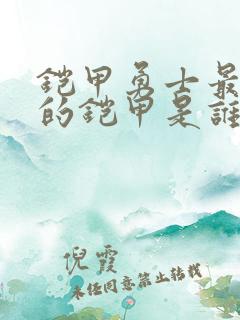 铠甲勇士最
的铠甲是誰
倪霞
未经同意禁止转载